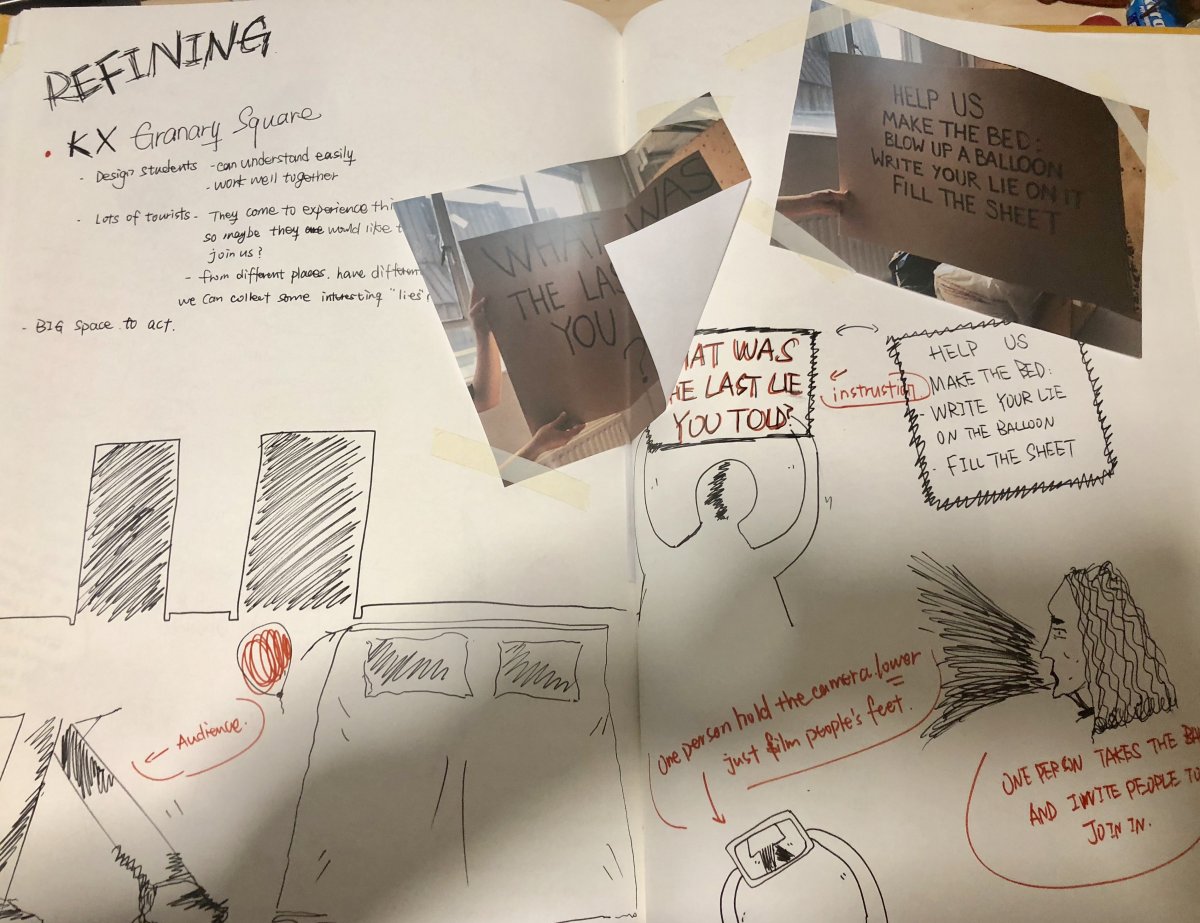 REFINING
KX Granary Square
- Design students - can understand easily
- work well together
- Lots of tourists - They come to experience thi
so maybe they would like t
join us?
- from different places. have different
we can collect some interesting "lies"
- BIG space to act.
WHAT WAS
THE LAS
YOU
?
HELP US
MAKE THE BED:
BLOW UP A BALLOON
WRITE YOUR LIE ON IT
FILL THE SHEET
HAT WAS
HE LAST LIE
YOU TOLD?
instrustion
HELP US
MAKE THE BED:
- WRITE YOUR LIE
ON THE BALLOON
- FILL THE SHEET
Audience.
One person hold the camera lower
just film people's feet.
ONE PERSON TAKES THE BA
AND INVITE PEOPLE TO
JOIN IN.